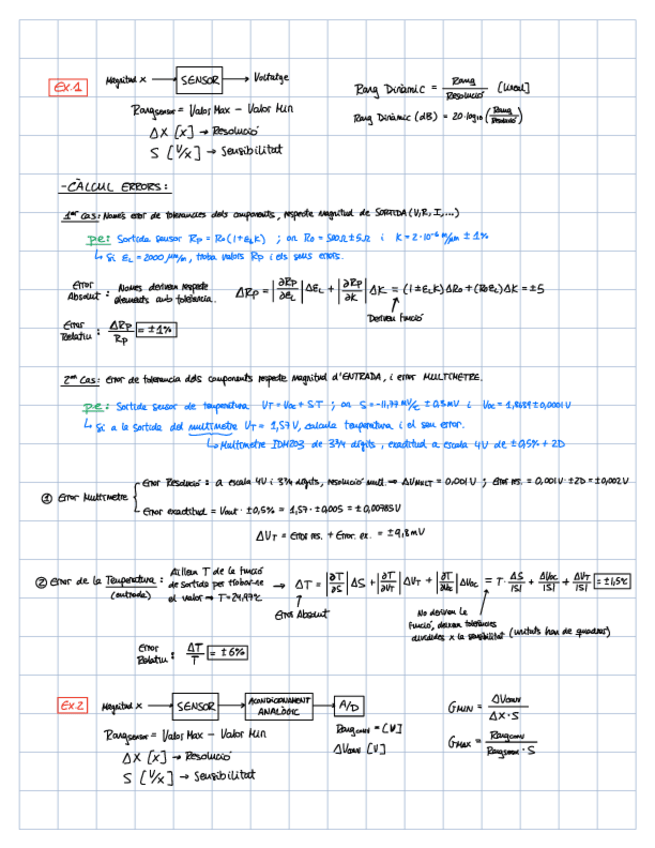 Ex.1
Magnitud x → SENSOR → Voltatge
Rang Dinàmic = Rang / Resolució [lineal]
Rang sensor = Valor Max - Valor Min
Rang Dinàmic (dB) = 20·log10 (Rang / Resolució)
ΔX [x] → Resolució
S [V/x] → Sensibilitat
- CÀLCUL ERRORS:
1er cas: Només error de toleràncies dels components, respecte magnitud de SORTIDA (V, R, I, ...)
p.e: Sortida sensor Rp = Ro(1+εLK) ; on Ro = 500Ω ± 5Ω i K = 2·10⁻⁶ m/μm ± 1%
↳ Si εL = 2000 μm/m, troba valors Rp i els seus errors.
Error Absolut : Només derivem respecte elements amb tolerància.
ΔRp = |∂Rp/∂εL| ΔεL + |∂Rp/∂K| ΔK = (1+εLK)ΔRo + (RoεL)ΔK = ±5
Derivem Funció
Error Relatiu : ΔRp/Rp = ±1%
2on Cas: Error de tolerancia dels components respecte magnitud d'ENTRADA, i error MULTÍMETRE.
p.e: Sortida sensor de temperatura VT = Voc + S·T ; on S = -11,77 mV/ºC ± 0,5mV i Voc = 1,8639 ± 0,0001 V
↳ Si a la sortida del multímetre VT = 1,57 V, calcula temperatura i el seu error.
↳ Multímetre IDM203 de 3 3/4 dígits, exactitud a escala 4V de ±0,5% + 2D
① Error Multímetre
Error Resolució : a escala 4V i 3 3/4 dígits, resolució mult. → ΔVMULT = 0,001 V ; Error res. = 0,001V · ±2D = ±0,002 V
Error exactitud = Vout · ±0,5% = 1,57 · ±0,005 = ±0,00785 V
ΔVT = Error res. + Error. ex. = ±9,8 mV
② Error de la Temperatura : (entrada)
Aïllem T de la funció de sortida per trobar-ne el valor → T = 24,97ºC
→ ΔT = |∂T/∂S| ΔS + |∂T/∂VT| ΔVT + |∂T/∂Voc| ΔVoc = T · ΔS/|S| + ΔVoc/|S| + ΔVT/|S| = ±1,5ºC
Error Absolut
No derivem la Funció, deixem toleràncies dividides x la sensibilitat (unitats han de quadrar)
Error Relatiu : ΔT/T = ±6%
Ex.2
Magnitud x → SENSOR → ACONDICIONAMENT ANALÒGIC → A/D
GMIN = ΔVconv / ΔX·S
Rang sensor = Valor Max - Valor Min
Rang conv = [V]
ΔX [x] → Resolució
ΔVconv [V]
GMAX = Rang conv / Rang sensor · S
S [V/x] → Sensibilitat